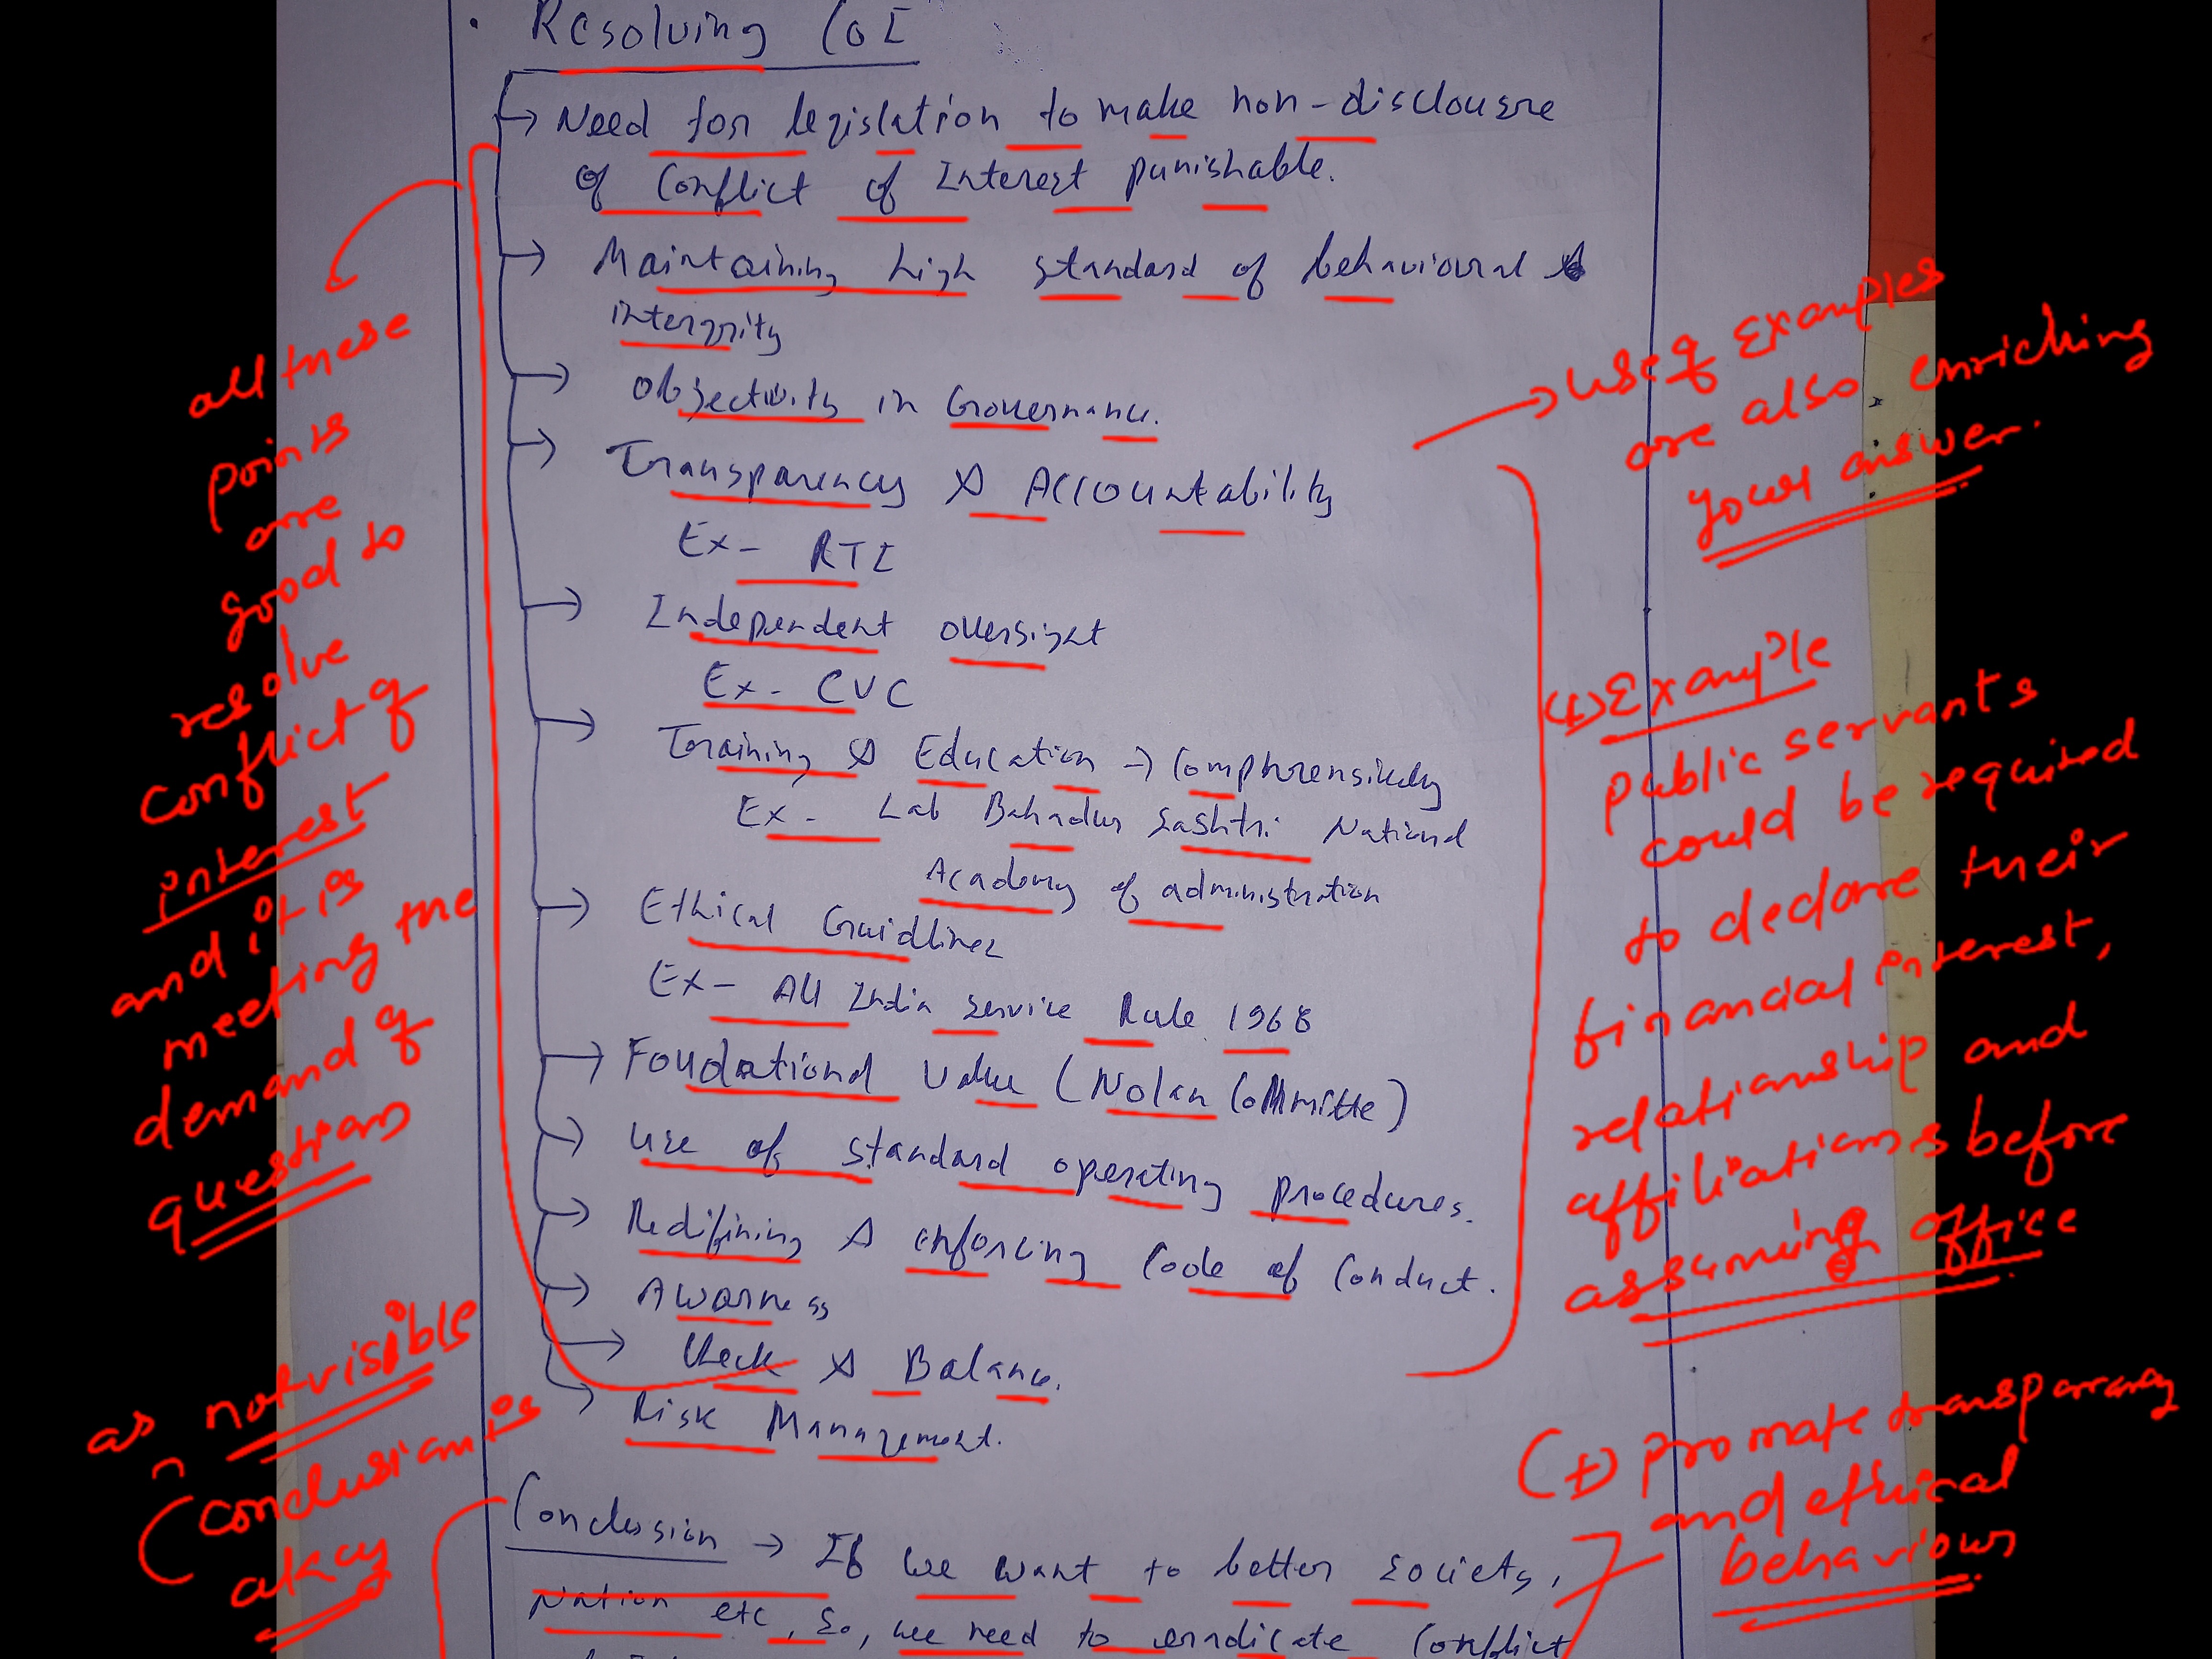 Resolving CoI
→ Need for legislation to make non-disclousre
of Conflict of Interest punishable.
→ Maintaining high standard of behavioural
interqrity
→ Objectivity in Governance.
→ Transparency & Accountability
Ex- RTI
→ Independent oversight
Ex- CVC
→ Training & Education → Comphrensively
Ex- Lab Bahadur Sashtri National
Academy of administration
→ Ethical Guidlines
Ex- All India Service Rule 1968
→ Foudational Value (Nolan Committe)
→ Use of standard operating procedures.
→ Redifining & enforcing Code of Conduct.
→ Awarness
→ Check & Balance.
→ Risk Management.
Conclussion → If we want to better society,
Nation etc, So, we need to erradicate Conflict
all these
points
are
good to
resolve
conflict of
interest
and it is
meeting the
demand of
question
as not visible
(conclusion is
okay
→ use of Examples
are also enriching
your answer.
(+) Example
public servants
could be required
to declare their
financial interest,
relationship and
affiliations before
assuming office
(+) promote transparency
and ethical
behaviour